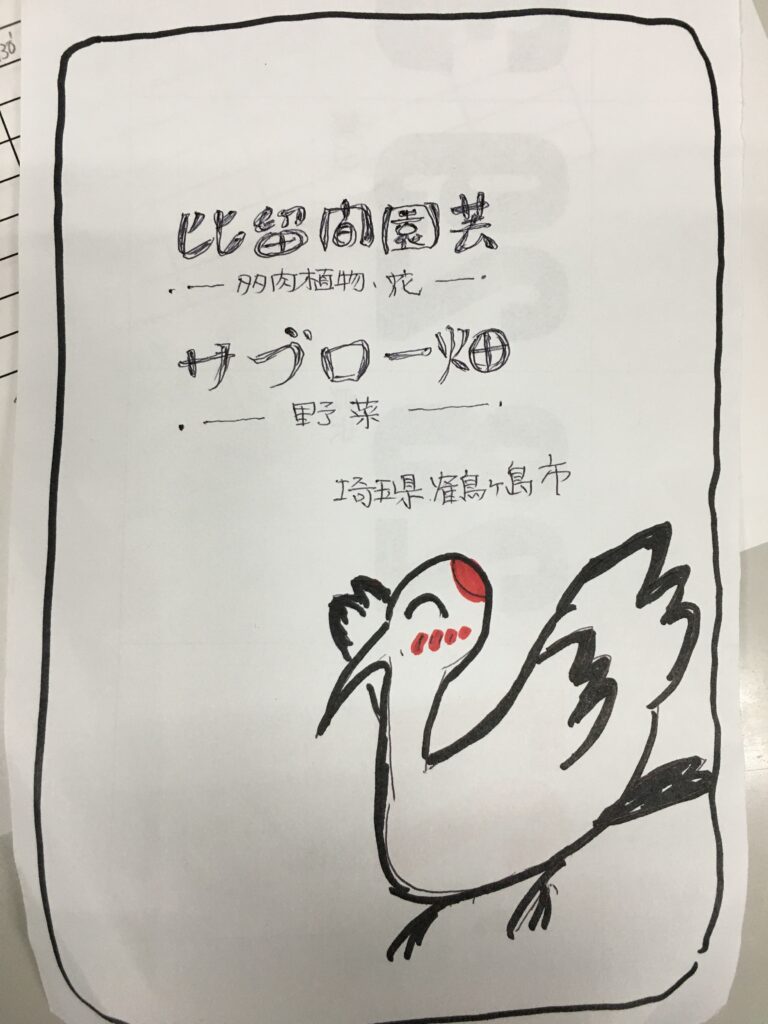 比留間園芸
・― 多肉植物、花 ―・
サブロー畑
・― 野菜 ―・
埼玉県鶴ヶ島市